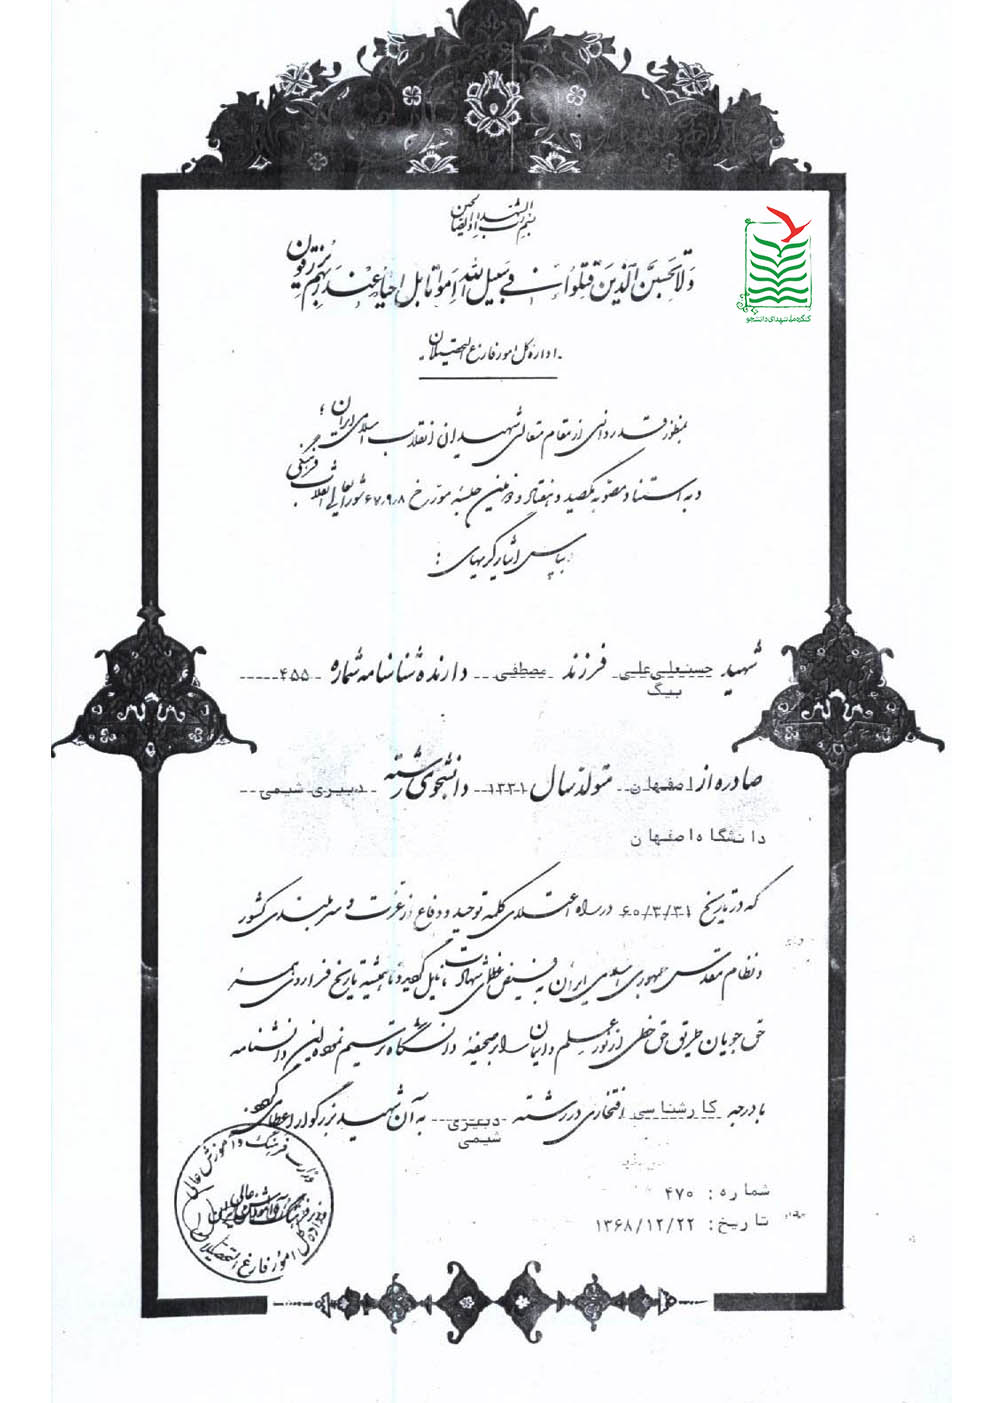 بسم رب الشهداء و الصالحین
ولا تحسبن الذین قتلوا فی سبیل الله امواتا بل احیاء عند ربهم یرزقون
کنگره ملی شهدای دانشجو
- اداره کل امور فارغ التحصیلان -
بمنظور قدردانی از مقام متعالی شهیدان انقلاب اسلامی ایران؛
و به استناد مصوبه یکصد و هفتاد و دومین جلسه مورخ ۶۷،۹،۸ شورایعالی انقلاب فرهنگی
بپاس ایثارگریهای:
شهید حسنعلی علی بیگ فرزند مصطفی دارنده شناسنامه شماره ۴۵۵
صادره از اصفهان متولد سال ۱۳۳۱ دانشجوی رشته دبیری شیمی
دانشگاه اصفهان
که در تاریخ ۶۰/۳/۳۱ در راه اعتلای کلمه توحید و دفاع از عزت و سربلندی کشور
و نظام مقدس جمهوری اسلامی ایران به فیض عظمای شهادت نایل گردید و تا همیشه تاریخ فراروی همه
حق جویان طریق حق خطی از نور علم و ایمان را بر صحیفه دانشگاه ترسیم نمود این دانشنامه
با درجه کارشناسی افتخاری در رشته دبیری شیمی به آن شهید بزرگوار اعطا می گردد
شماره: ۴۷۰
تاریخ: ۱۳۶۸/۱۲/۲۲
وزارت فرهنگ و آموزش عالی
اداره کل امور فارغ التحصیلان